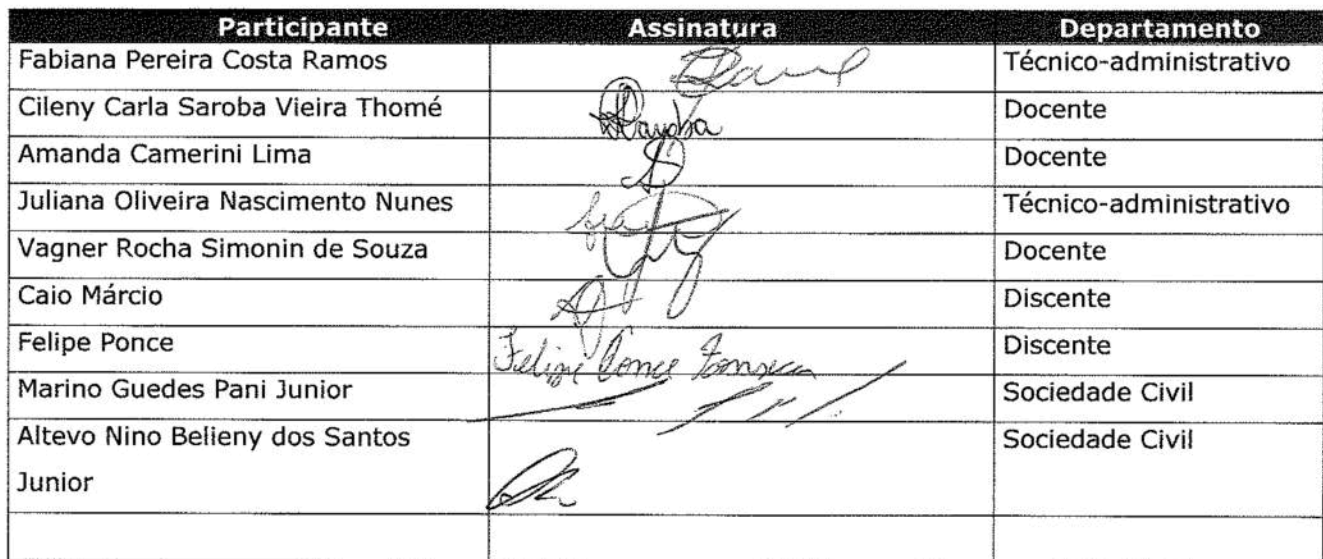 Participante Assinatura Departamento
Fabiana Pereira Costa Ramos Técnico-administrativo
Cileny Carla Saroba Vieira Thomé Docente
Amanda Camerini Lima Docente
Juliana Oliveira Nascimento Nunes Técnico-administrativo
Vagner Rocha Simonin de Souza Docente
Caio Márcio Discente
Felipe Ponce Felipe Ponce Fonseca Discente
Marino Guedes Pani Junior Sociedade Civil
Altevo Nino Belieny dos Santos Sociedade Civil
Junior